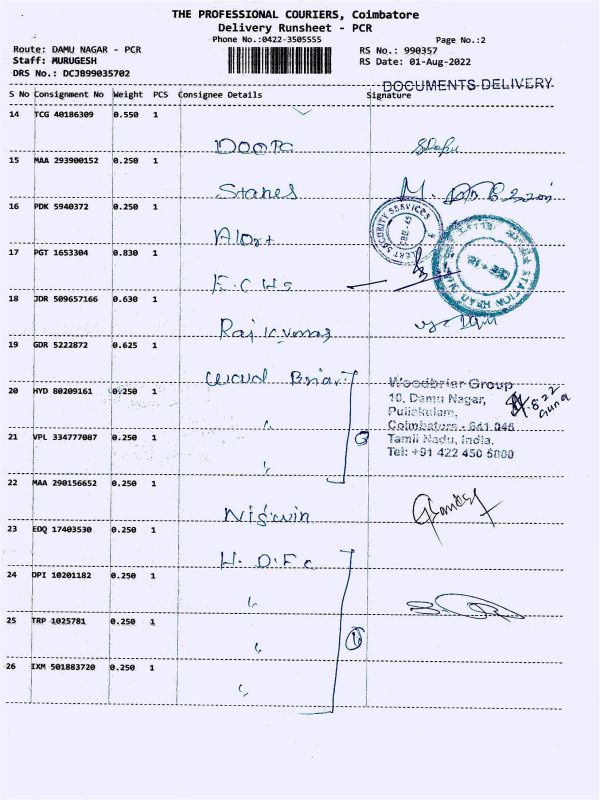 THE PROFESSIONAL COURIERS, Coimbatore
Delivery Runsheet - PCR
Phone No.:0422-3505555
Page No.:2
Route: DAMU NAGAR - PCR
RS No.: 990357
Staff: MURUGESH
RS Date: 01-Aug-2022
DRS No.: DCJB99035702
DOCUMENTS DELIVERY
S No Consignment No Weight PCS Consignee Details Signature
14 TCG 40186309 0.550 1
15 MAA 293900152 0.250 1
Stanes
16 PDK 5940372 0.250 1
Alert
17 PGT 1653304 0.830 1
E.C.H.S
18 JDR 509657166 0.630 1
Raj Kumar
19 GDR 5222872 0.625 1
Wood Briar
20 HYD 80209161 0.250 1
"
21 VPL 334777087 0.250 1
"
Woodbriar Group
10, Damu Nagar,
Puliakulam,
Coimbatore - 641 045
Tamil Nadu, India.
Tel: +91 422 450 5000
22 MAA 290156652 0.250 1
23 EDQ 17403530 0.250 1
H.D.F.C
24 DPI 10201182 0.250 1
"
25 TRP 1025781 0.250 1
"
26 IXM 501883720 0.250 1
"